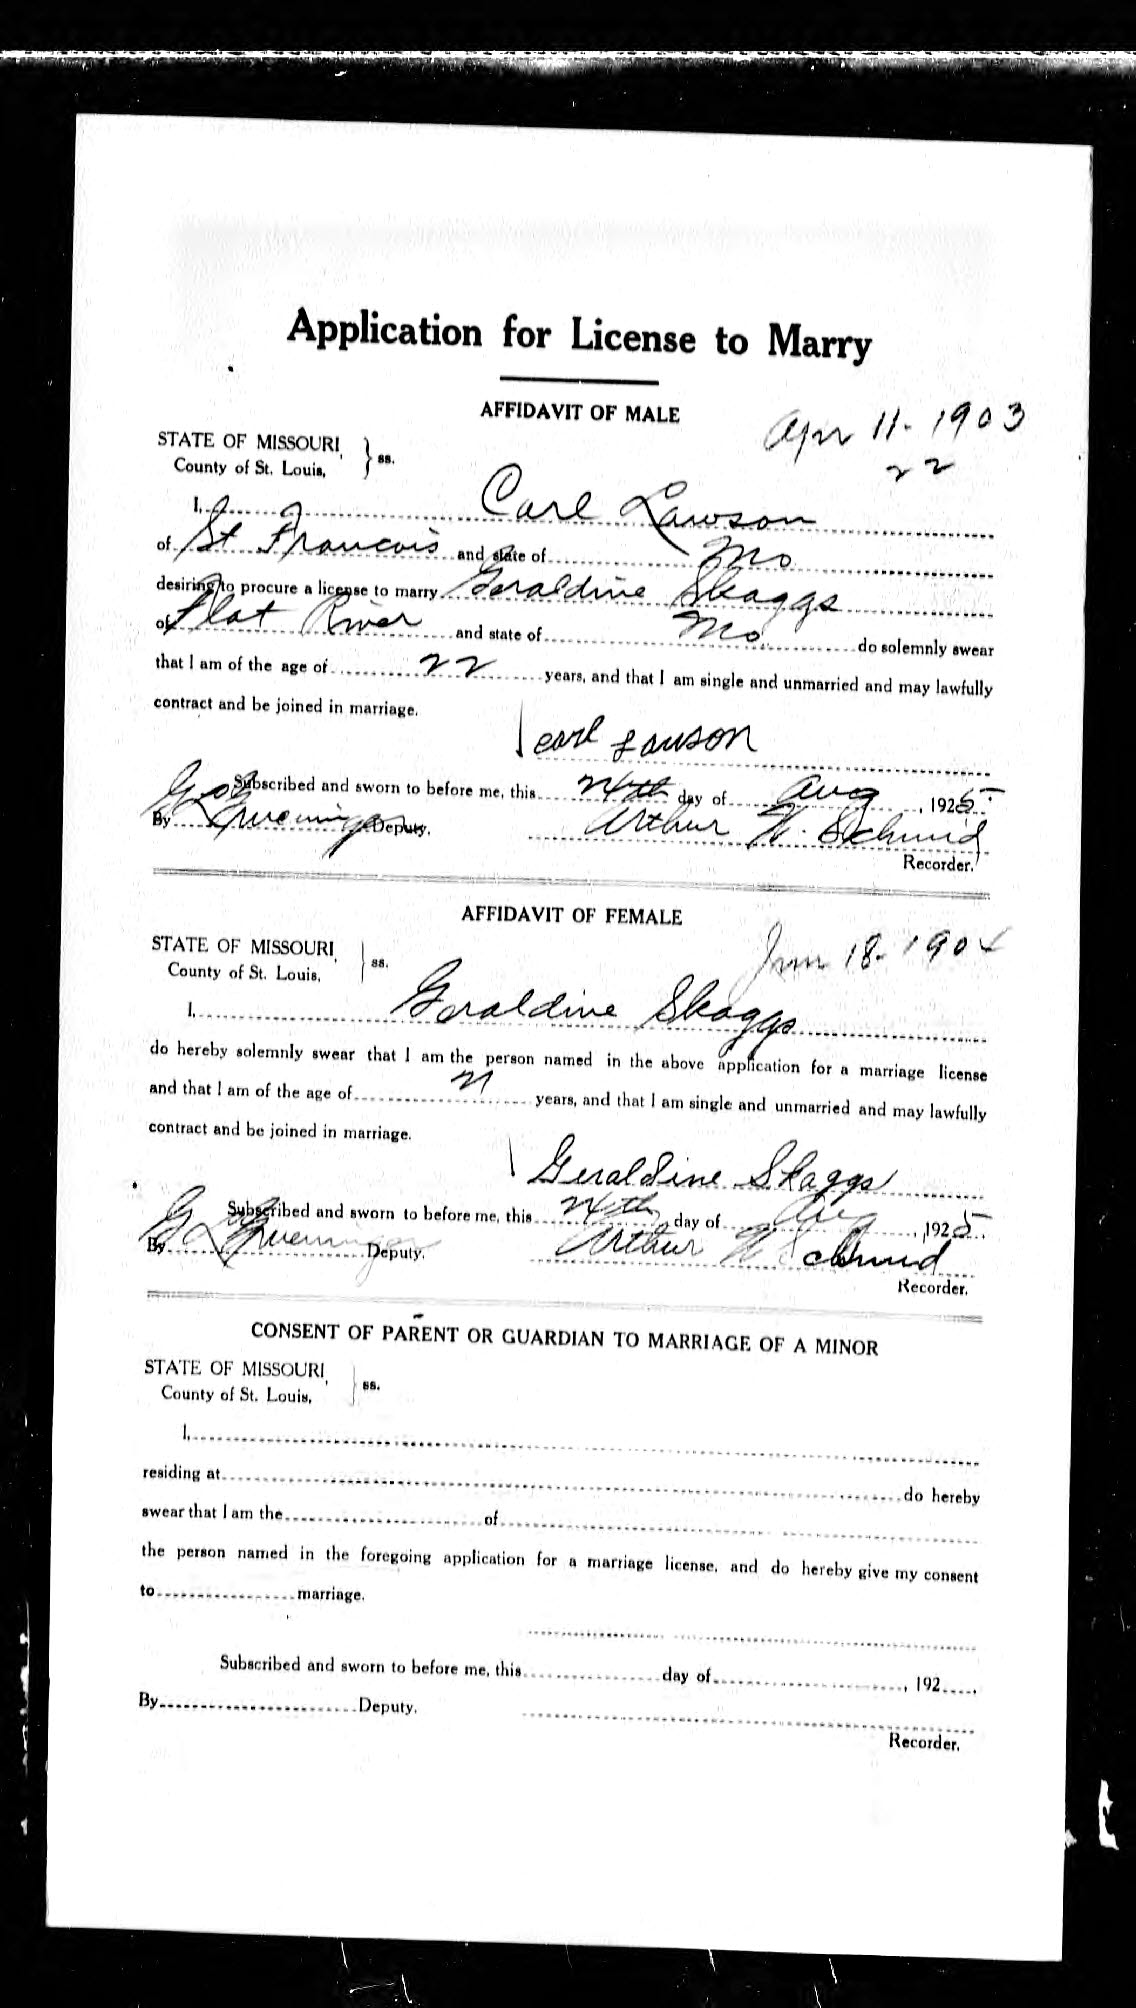 Application for License to Marry
AFFIDAVIT OF MALE
Apr 11 - 1903
22
STATE OF MISSOURI,
County of St. Louis, } ss.
I, Carl Lawson
of St Francois and state of Mo
desiring to procure a license to marry Geraldine Skaggs
of Flat River and state of Mo. do solemnly swear
that I am of the age of 22 years, and that I am single and unmarried and may lawfully
contract and be joined in marriage.
Carl Lawson
Subscribed and sworn to before me, this 24th day of Aug, 1925.
By Deputy. Arthur H. Schmid
Recorder.
AFFIDAVIT OF FEMALE
18 - 1904
STATE OF MISSOURI,
County of St. Louis, } ss.
I, Geraldine Skaggs
do hereby solemnly swear that I am the person named in the above application for a marriage license
and that I am of the age of 21 years, and that I am single and unmarried and may lawfully
contract and be joined in marriage.
Geraldine Skaggs
Subscribed and sworn to before me, this 24th day of Aug, 1925.
By Deputy. Arthur H Schmid
Recorder.
CONSENT OF PARENT OR GUARDIAN TO MARRIAGE OF A MINOR
STATE OF MISSOURI,
County of St. Louis, } ss.
I,
residing at do hereby
swear that I am the of
the person named in the foregoing application for a marriage license, and do hereby give my consent
to marriage.
Subscribed and sworn to before me, this day of , 192 ,
By Deputy.
Recorder.